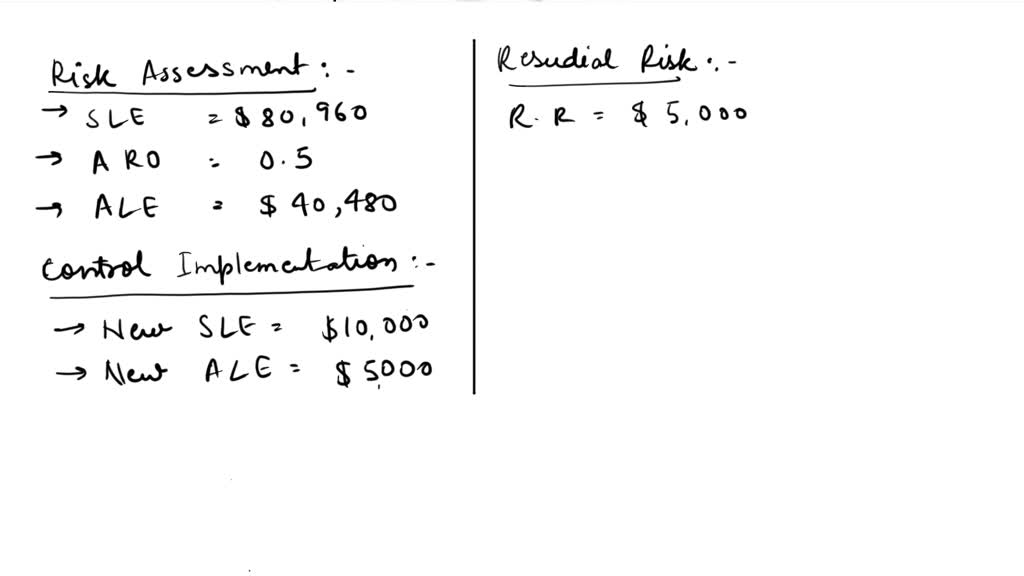 Risk Assessment :-
→ SLE = $80,960
→ ARO = 0.5
→ ALE = $40,480
Control Implementation :-
→ New SLE = $10,000
→ New ALE = $5,000
Resudial Risk :-
R.R = $5,000